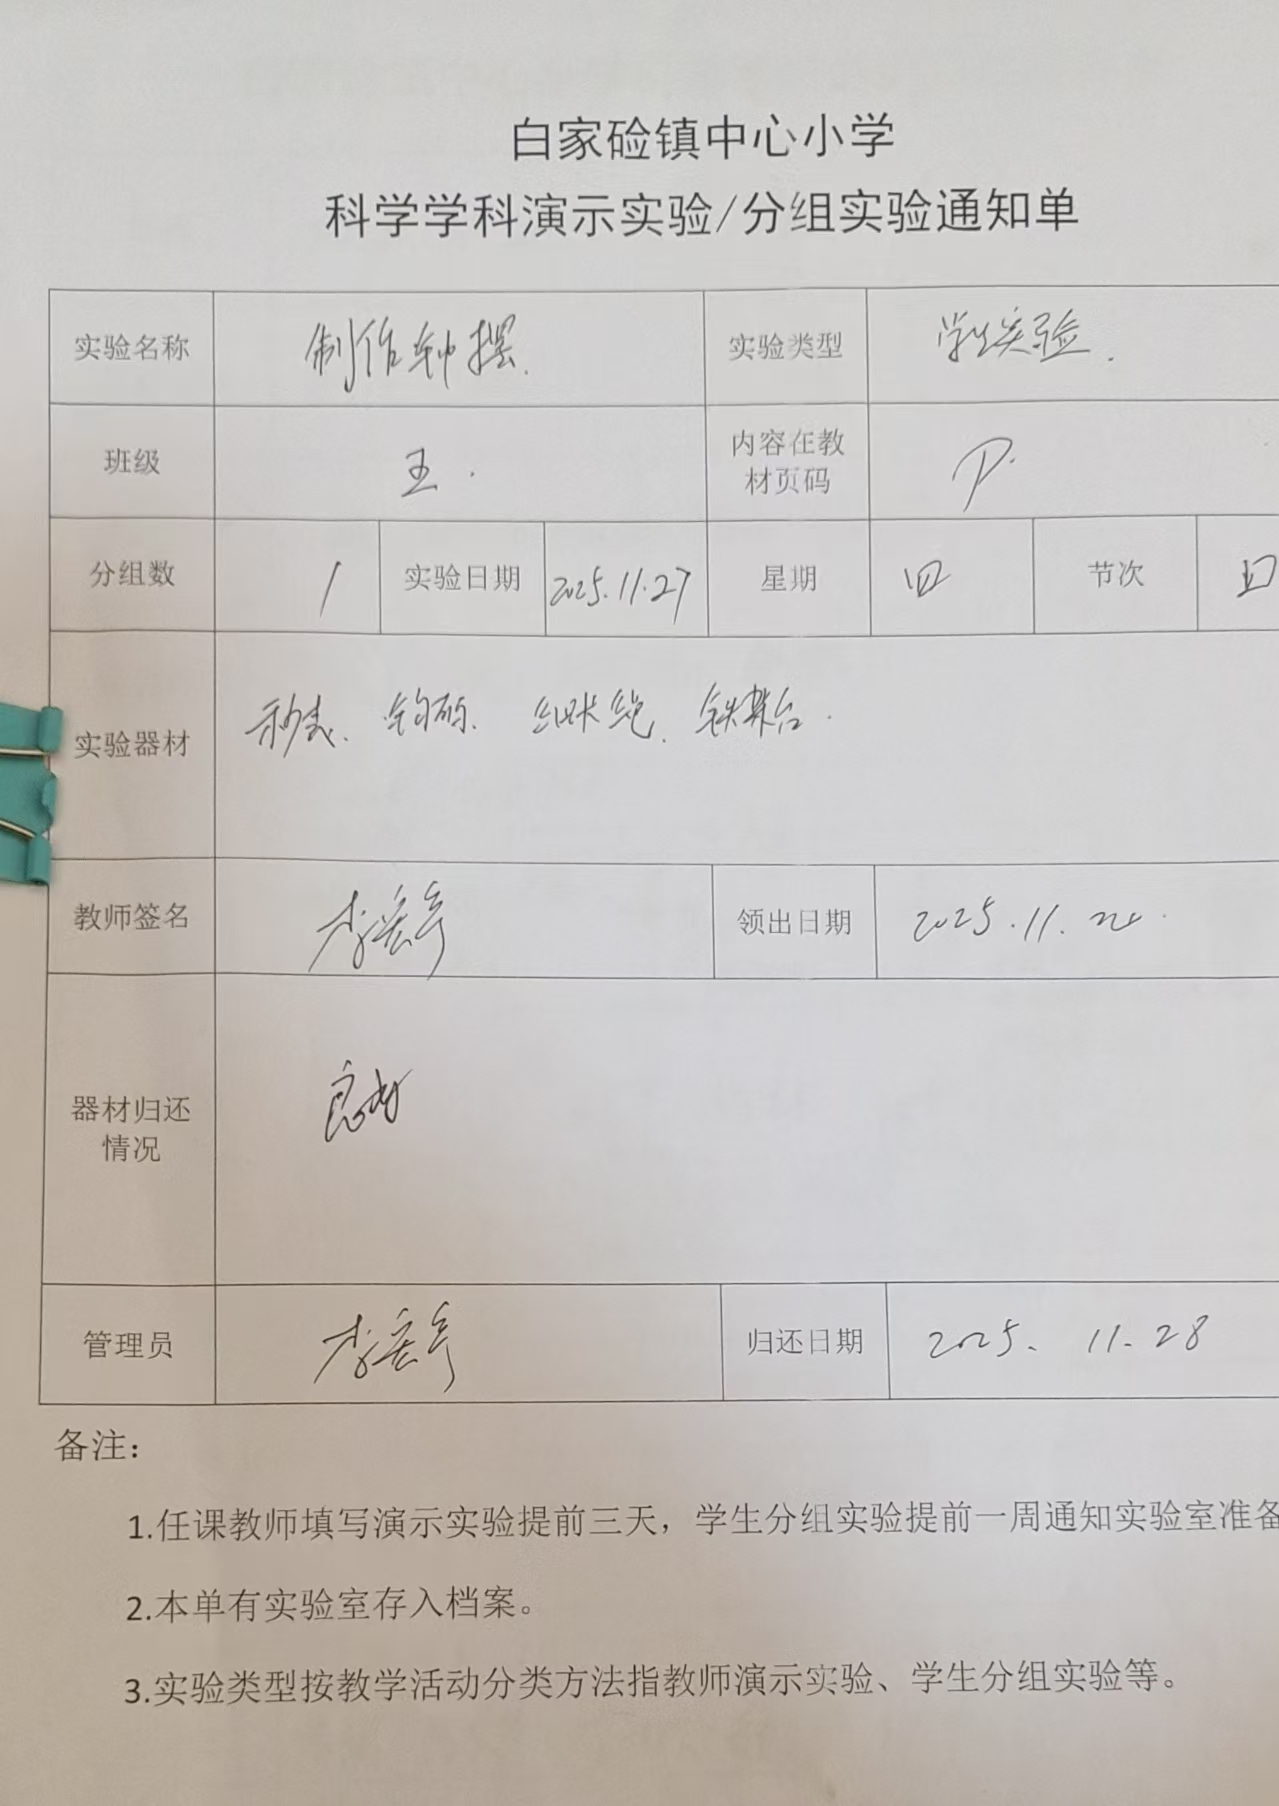 白家硷镇中心小学
科学学科演示实验/分组实验通知单
实验名称 制作钟摆. 实验类型 学生实验.
班级 五. 内容在教材页码 P.
分组数 1 实验日期 2025.11.27 星期 四 节次
实验器材 秒表、钩码、细长绳、铁架台.
教师签名 领出日期 2025.11.
器材归还情况 良好
管理员 归还日期 2025. 11. 28
备注：
1.任课教师填写演示实验提前三天，学生分组实验提前一周通知实验室准备
2.本单有实验室存入档案。
3.实验类型按教学活动分类方法指教师演示实验、学生分组实验等。